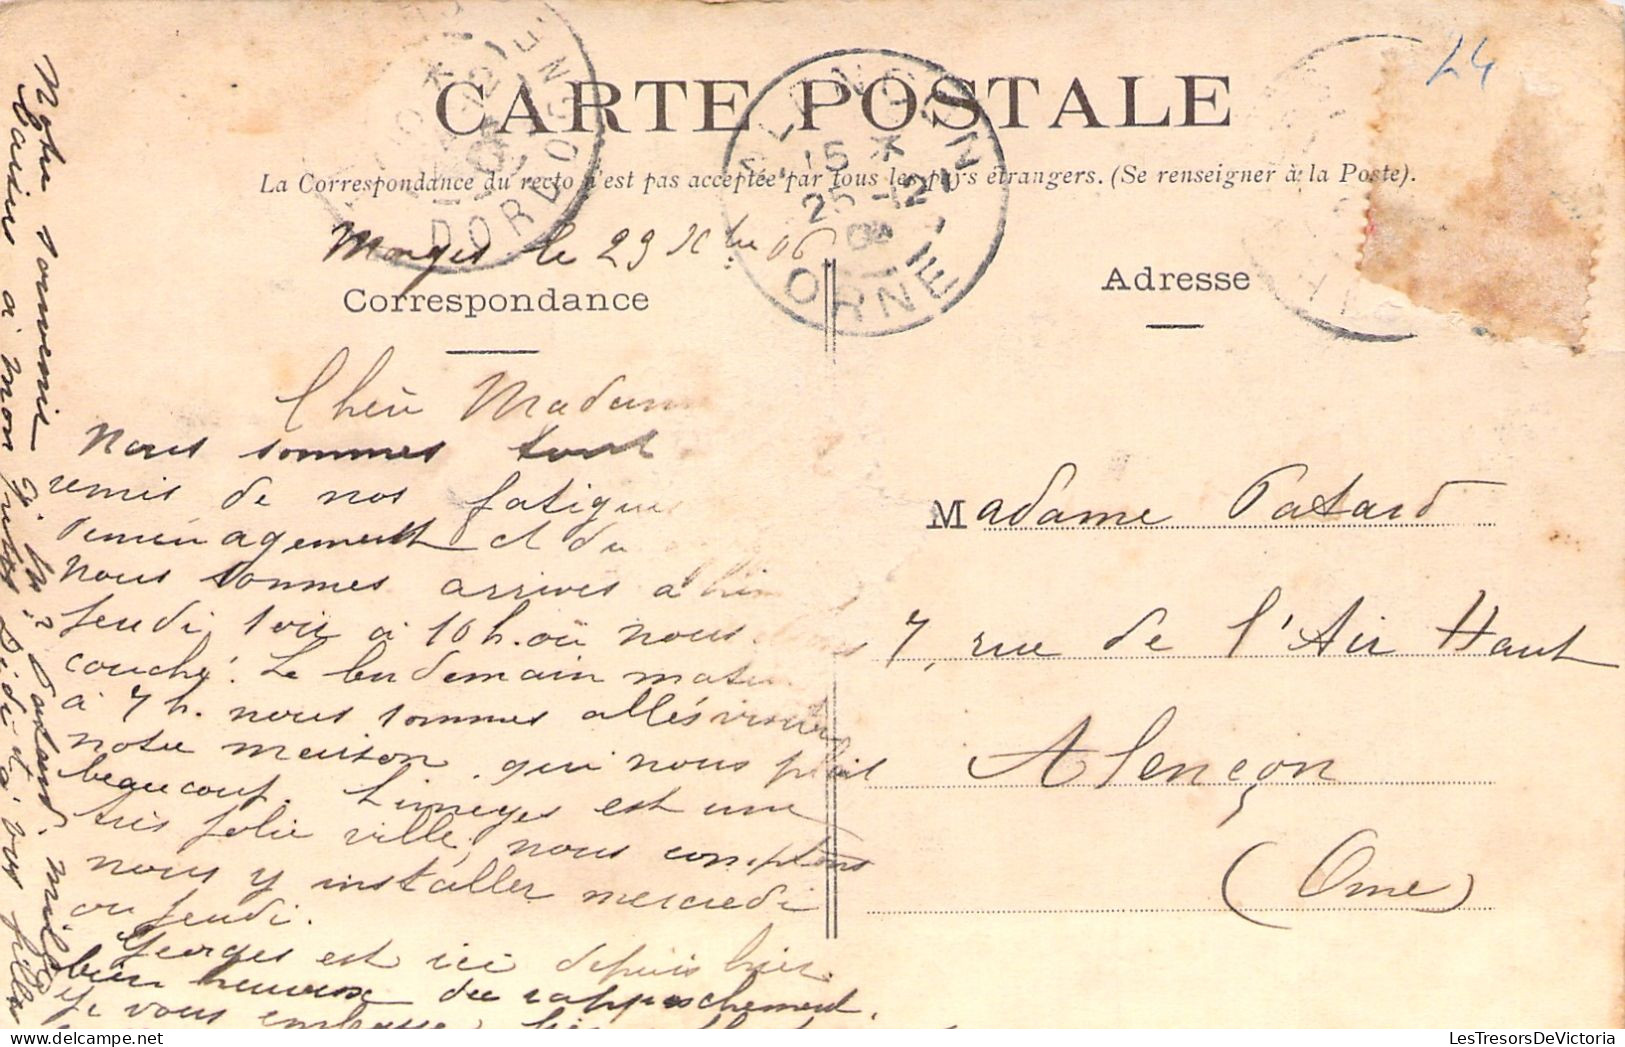 24
CARTE POSTALE
La Correspondance du recto n'est pas acceptée par tous les pays étrangers. (Se renseigner à la Poste).
ALENCON
15 *
25 -12
ORNE
DORDOGNE
le 29 Xbre 06
Correspondance
Adresse
Chère Madame
Nous sommes tout
remis de nos fatigues
demenagement et du
Nous sommes arrives a
Jeudi soir à 10 h. où nous
couché. Le lendemain matin
à 7 h. nous sommes allés visiter
notre maison qui nous plait
beaucoup. Limoges est une
très jolie ville, nous comptons
nous y installer mercredi
ou jeudi.
Georges est ici depuis hier
bien heureux du rapprochement.
Je vous embrasse
Notre souvenir à Mr Patard. mille
baisers à mon petit Didi et à vos filles
Madame Patard
7, rue de l'Air Haut
Alençon
(Orne)
LesTresorsDeVictoria